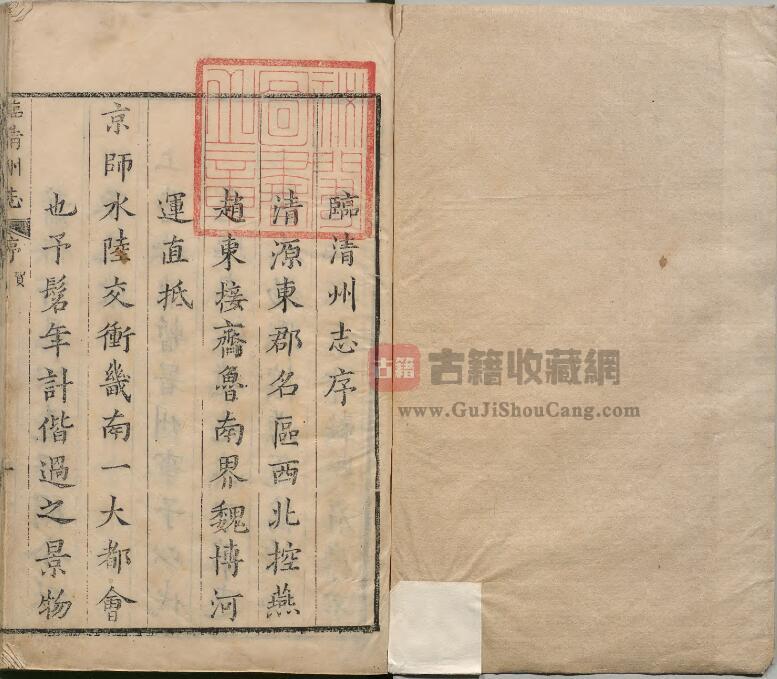 臨清州志序
清源東郡名區西北控燕
趙東接齊魯南界魏博河
運直抵
京師水陸交衝畿南一大都會
也予髫年計偕過之景物
臨清州志
序
賀
古籍
古籍收藏網
www.GuJiShouCang.com